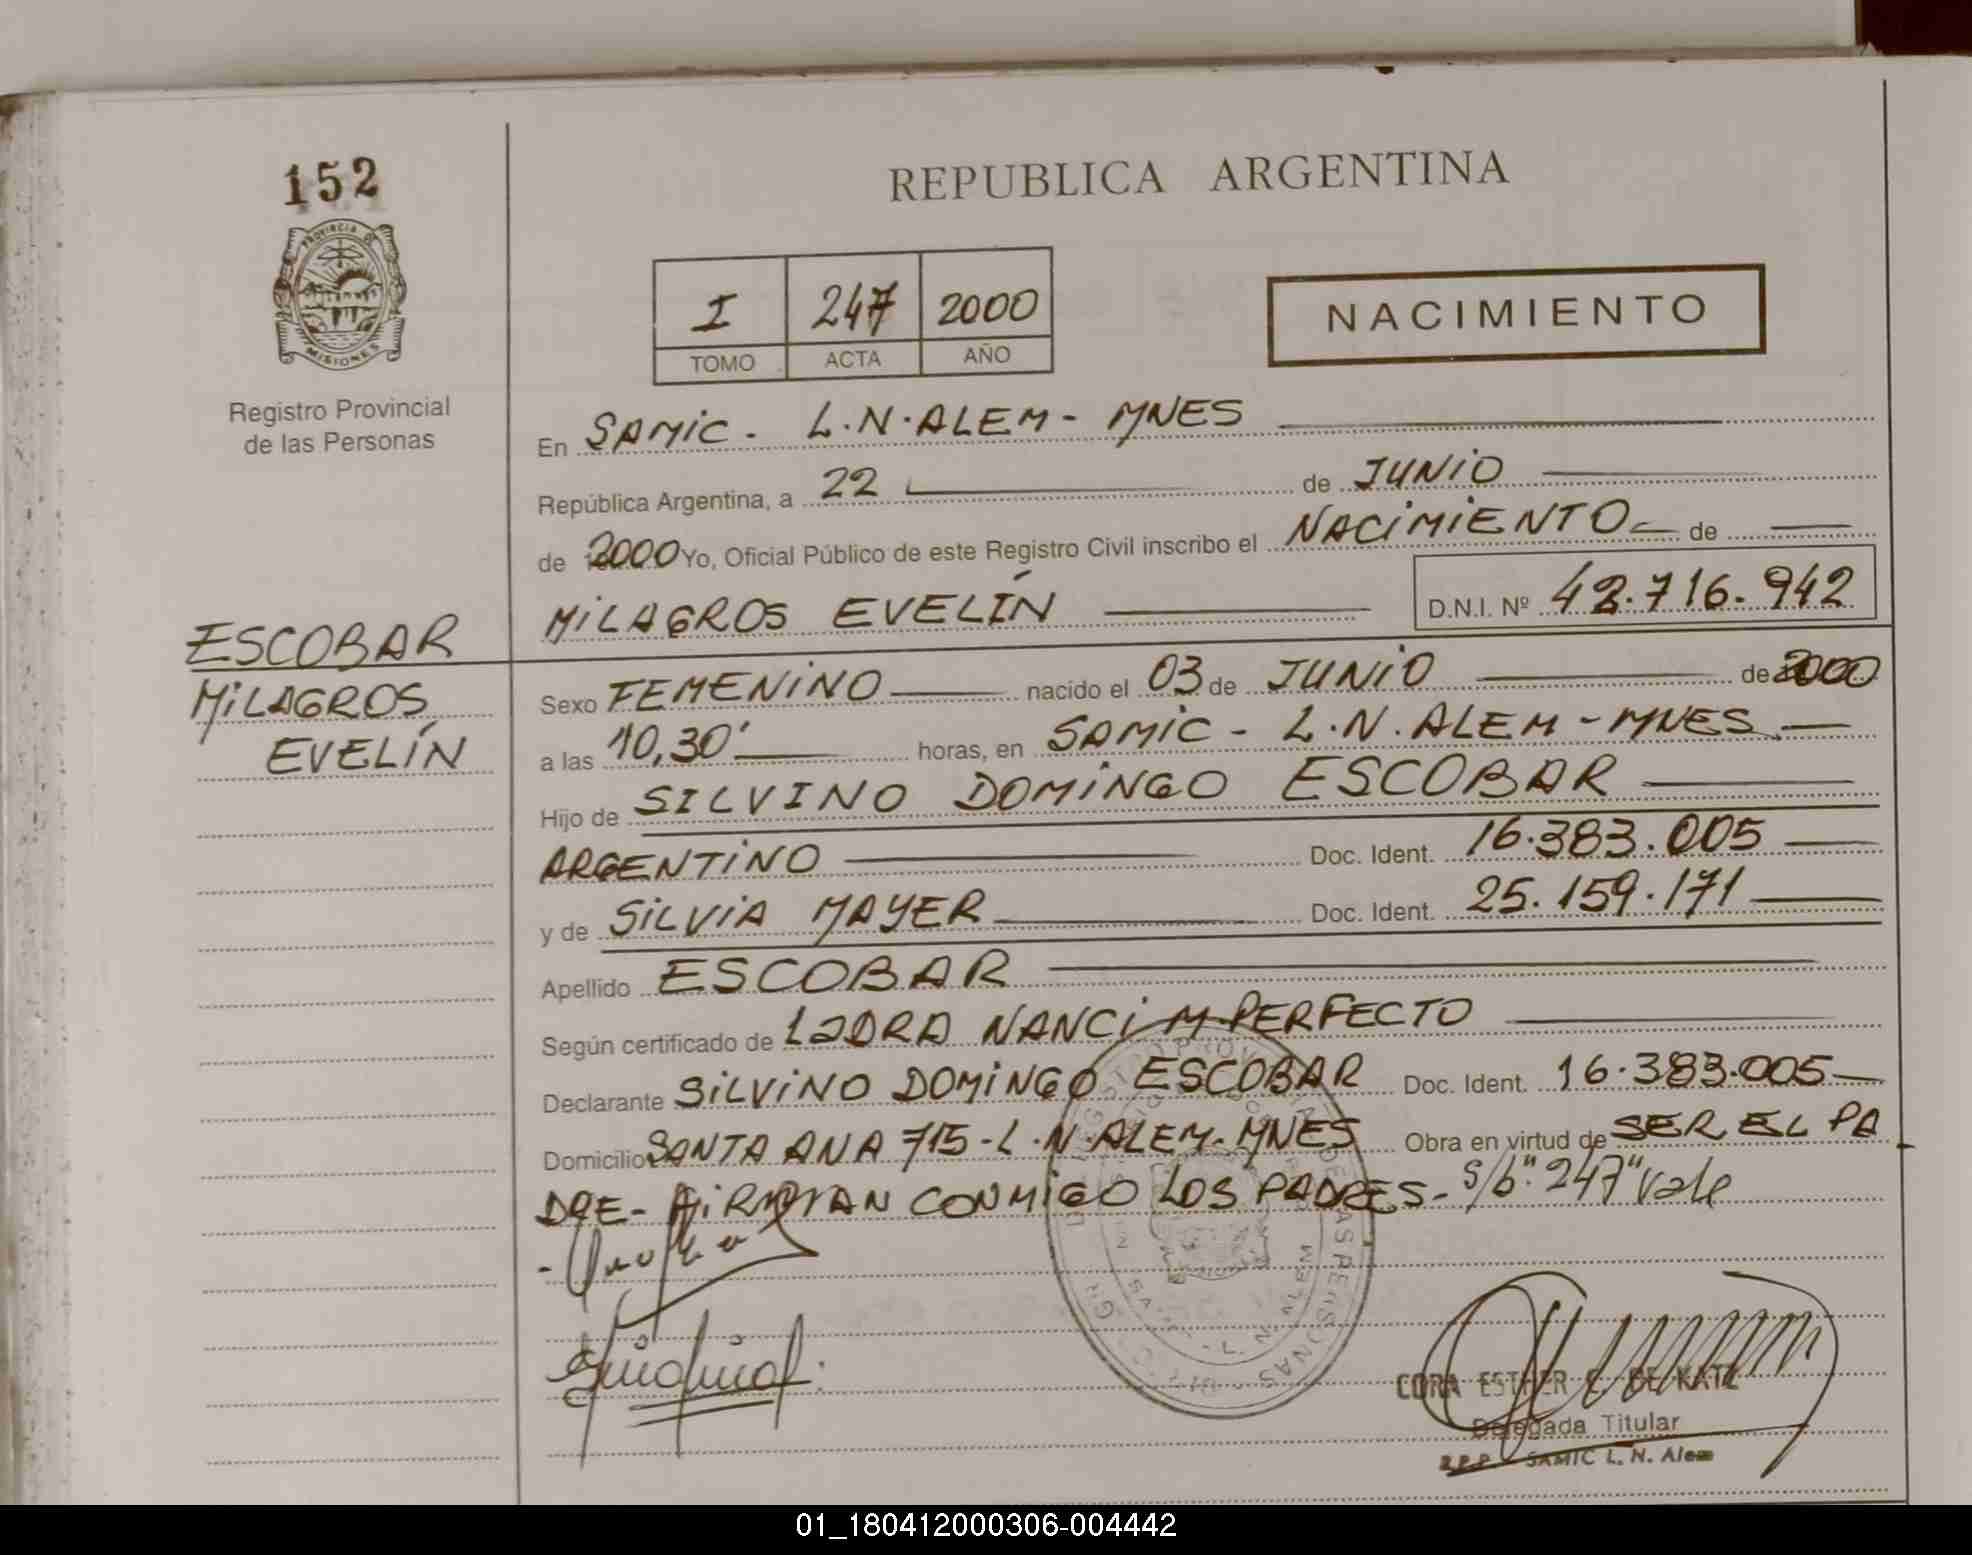 152
PROVINCIA DE
MISIONES
Registro Provincial
de las Personas
ESCOBAR
MILAGROS
EVELÍN
REPUBLICA ARGENTINA
I 247 2000
TOMO ACTA AÑO
NACIMIENTO
En SAMIC - L.N. ALEM - MNES
República Argentina, a 22 de JUNIO
de 2000 Yo, Oficial Público de este Registro Civil inscribo el NACIMIENTO de
MILAGROS EVELÍN D.N.I. Nº 42.716.942
Sexo FEMENINO nacido el 03 de JUNIO de 2000
a las 10,30' horas, en SAMIC - L.N. ALEM - MNES
Hijo de SILVINO DOMINGO ESCOBAR
ARGENTINO Doc. Ident. 16.383.005
y de SILVIA MAYER Doc. Ident. 25.159.171
Apellido ESCOBAR
Según certificado de NANCI M. PERFECTO
Declarante SILVINO DOMINGO ESCOBAR Doc. Ident. 16.383.005
Domicilio SANTA ANA 715 - L.N. ALEM - MNES Obra en virtud de SER EL PA
DRE - FIRMAN CONMIGO LOS PADRES - S/b "247" vale
CORA ESTHER DE KATZ
Delegada Titular
SAMIC L. N. Alem
01_180412000306-004442